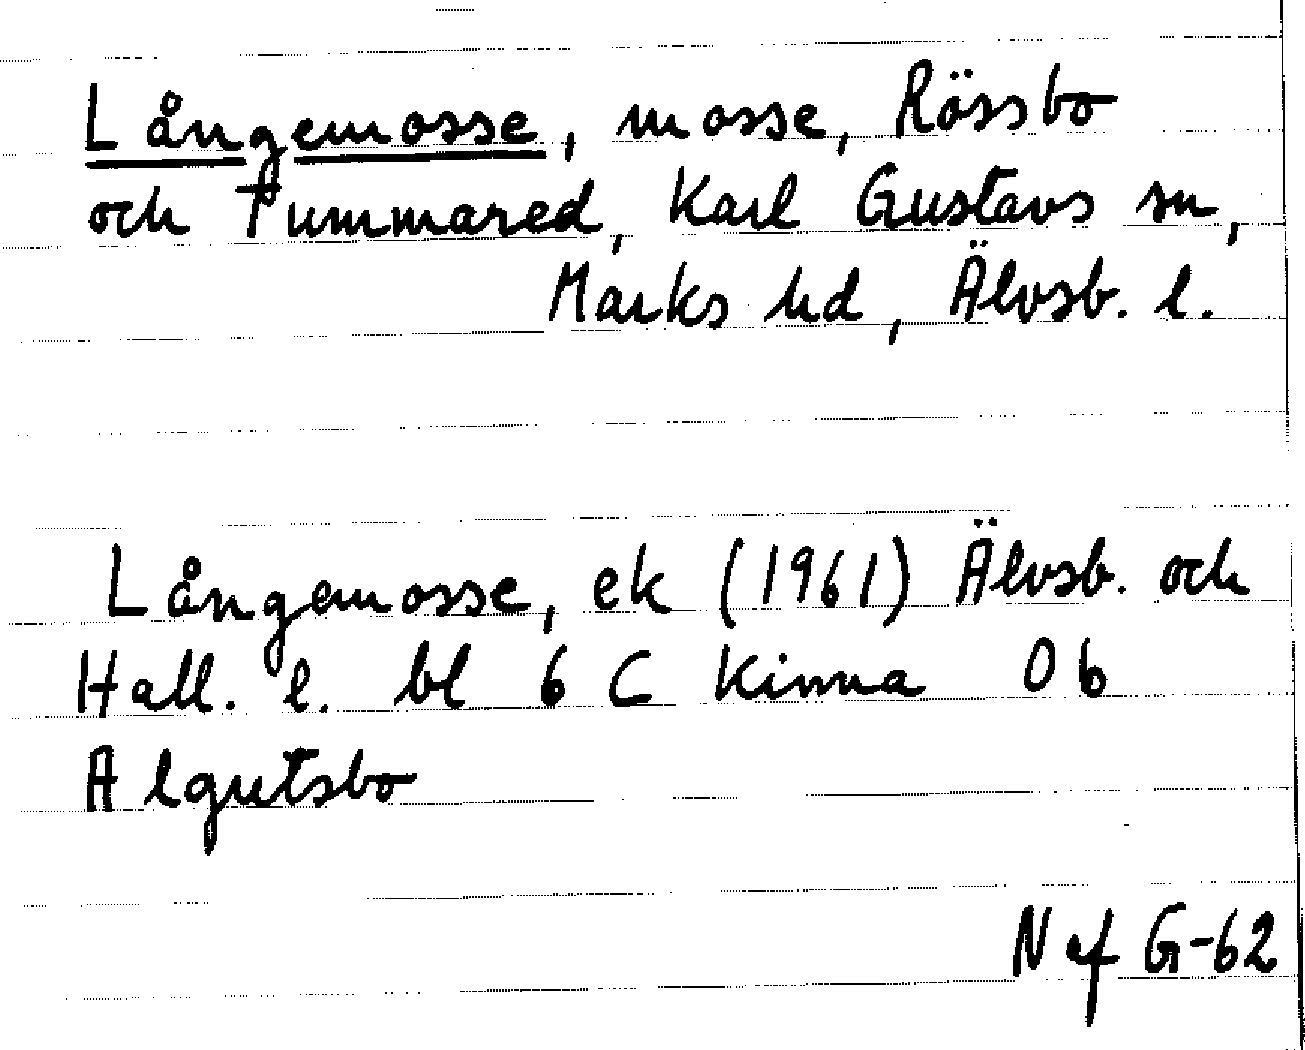 Långemosse, mosse, Rössbo
och Tummared, Karl Gustavs sn,
Marks hd, Älvsb. l.
Långemosse, ek (1961) Älvsb. och
Hall. l. bl 6 C Kinna 0 b
Algutsbo
N ef G-62